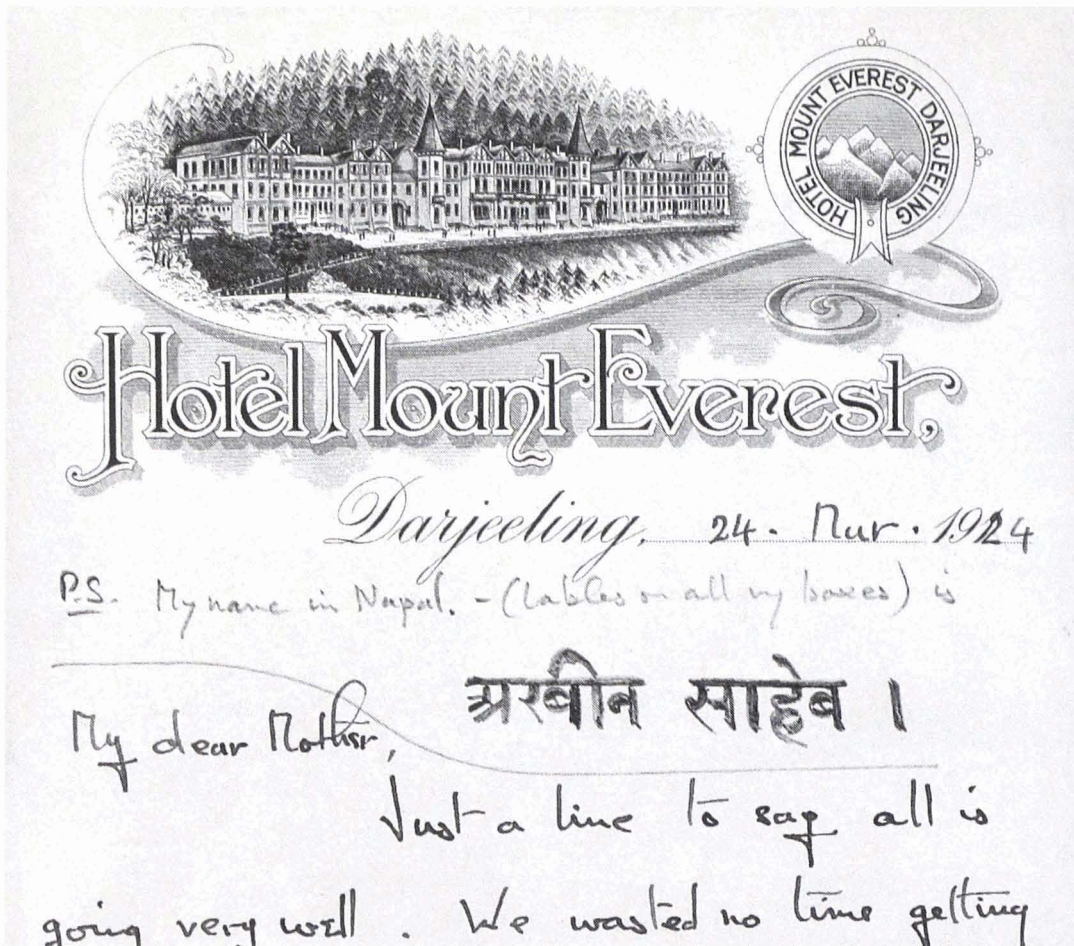 HOTEL MOUNT EVEREST DARJEELING
Hotel Mount Everest,
Darjeeling, 24. Mar. 1924
P.S. My name in Nepal. - (lables on all my boxes) is
अरबीन साहेब ।
My dear Mother,
Just a line to say all is
going very well. We wasted no time getting